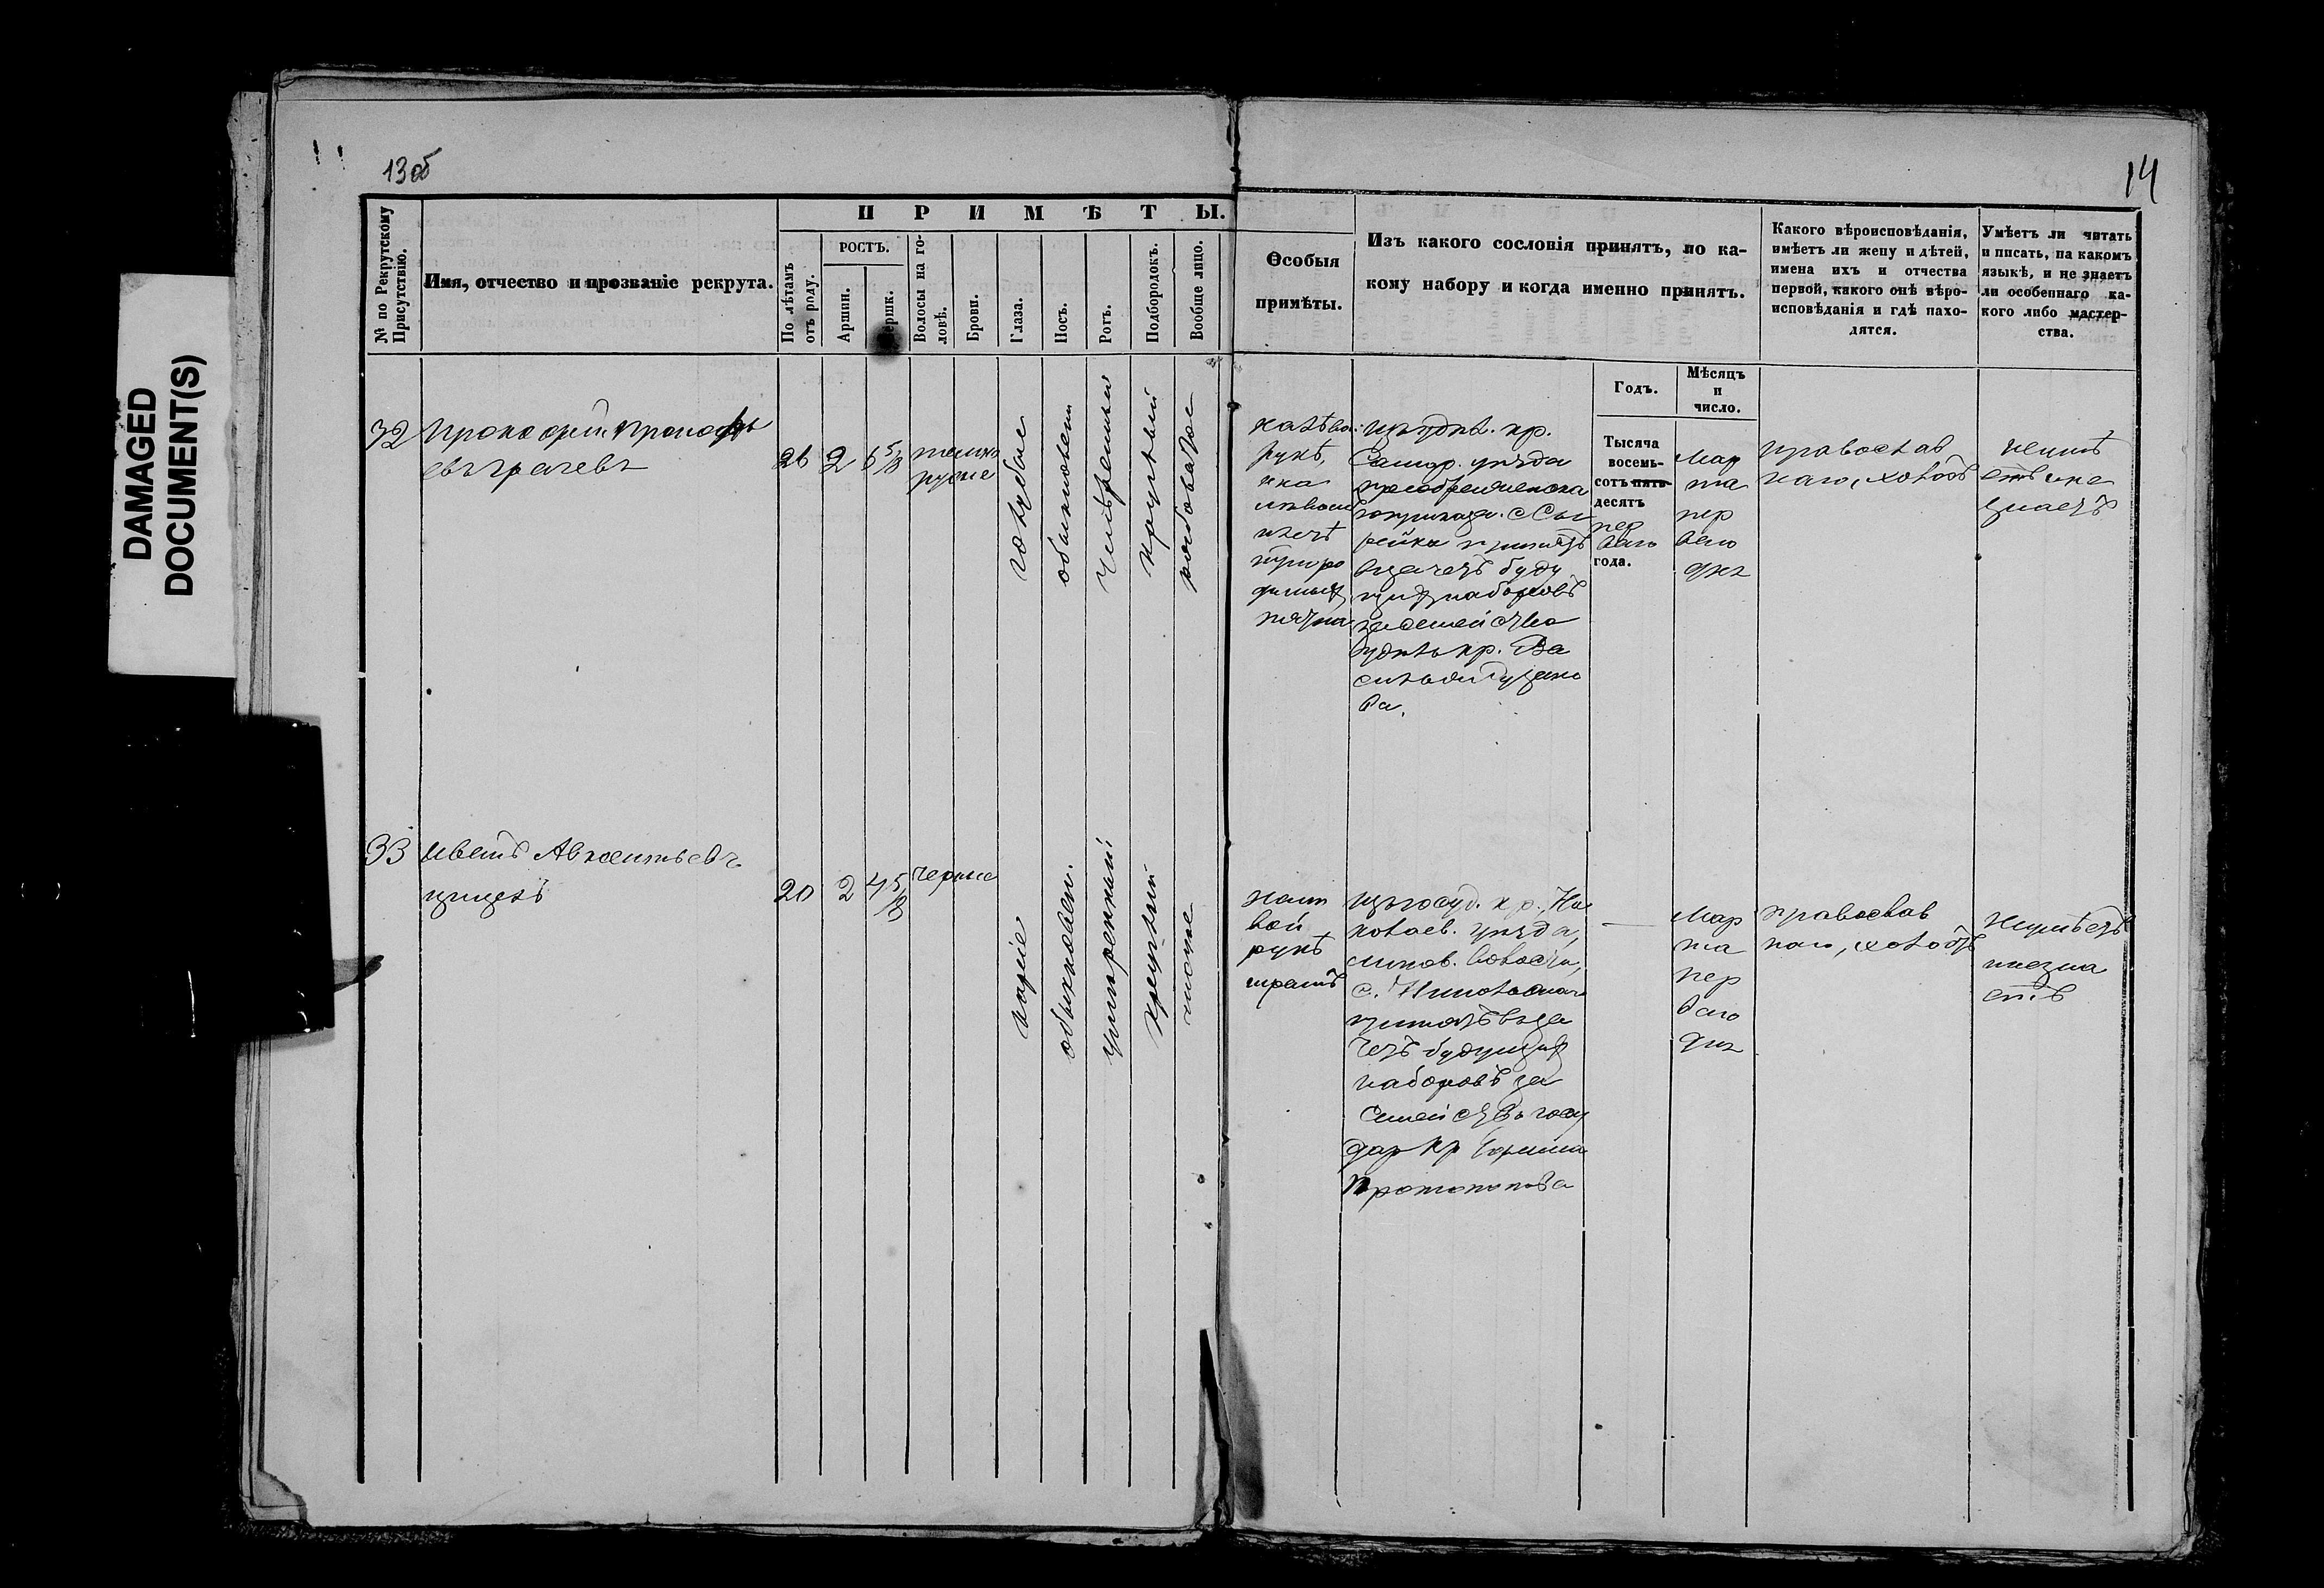 DAMAGED
DOCUMENT(S)
13 об
14
№ по Рекрутскому
Присутствію.
Имя, отчество и прозваніе рекрута.
ПРИМѢТЫ.
По лѣтамъ
отъ роду.
РОСТЪ.
Аршин.
Вершк.
Волосы на го-
ловѣ.
Брови.
Глаза.
Носъ.
Ротъ.
Подбородокъ.
Вообще лицо.
Особыя
примѣты.
Изъ какого сословія принятъ, по ка-
кому набору и когда именно принятъ.
Какого вѣроисповѣданія,
имѣетъ ли жену и дѣтей,
имена ихъ и отчества
первой, какого онѣ вѣро-
исповѣданія и гдѣ нахо-
дятся.
Умѣетъ ли читать
и писать, на какомъ
языкѣ, и не знаетъ
ли особеннаго ка-
кого либо мастер-
ства.
Годъ.
Мѣсяцъ
и
число.
32
Прокофій Прокофь
евъ Грачевъ
26
2
6 5/8
темно
русые
голубые
обыкновен
умѣренный
круглый
рябоватое
на лѣвой
рукѣ,
и на
лѣвом
плечѣ
природныя
пятна
изъ удѣл. кр.
Самар. уѣзда
преображенска
го приказа. с Сы
рейки принятъ
взачетъ буду
щихъ наборовъ
за семейство
удѣль кр. Ва
силья
ва.
Тысяча
восемь-
сотъ пять-
десятъ
пер
ваго
года.
Мар
та
пер
ваго
дня
православ
наго, холостъ
неумѣ
етъ и не
знаетъ
33
Иванъ Авксентьевъ
20
2
4 5/8
черные
каріе
обыкновен.
умѣренный
круглый
чистое
на лѣ
вой
рукѣ
шрамъ
Изъ госуд. кр., Ни
колаев. уѣзда,
волости,
с.
принятъ въ за
четъ будущихъ
наборовъ за
семейство госу
дар кр
Протопопова
Мар
та
пер
ваго
дня
православ
наго, холостъ
Неумѣетъ
и незна
етъ